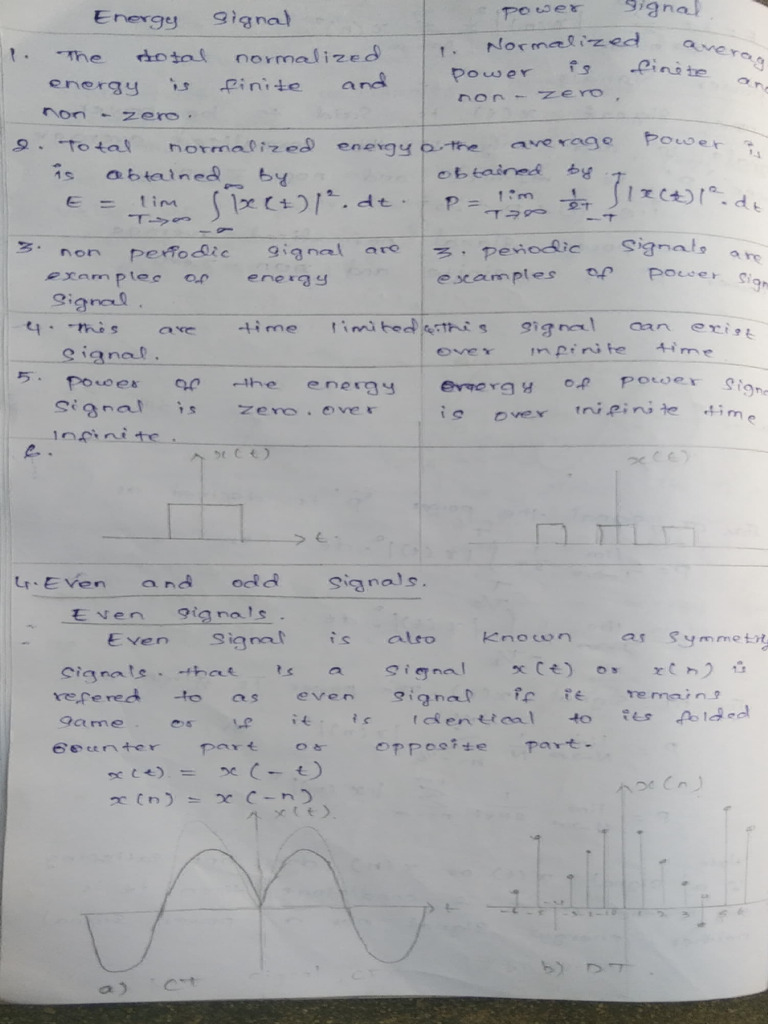 Energy Signal
power Signal
1. The total normalized
energy is finite and
non - zero.
1. Normalized averag
power is finite an
non - zero.
2. Total normalized energy
is obtained by
E = lim T→∞ ∫ ∞ -∞ |x(t)|². dt.
2. the average Power is
obtained by
P = lim T→∞ 1/2T ∫ T -T |x(t)|². dt
3. non periodic signal are
examples of energy
Signal.
3. periodic Signals are
examples of power Sign
4. This are time limited
signal.
4. This signal can exist
over Infinite time
5. power of the energy
Signal is zero. over
Infinite.
energy of power Signa
is over inifinite time
6.
x(t)
t
x(t)
4. Even and odd Signals.
Even signals.
Even Signal is also known as Symmetry
Signals. that is a Signal x(t) or x(n) is
refered to as even signal if it remains
game or if it is Identical to its folded
counter part or opposite part.
x(t) = x(-t)
x(n) = x(-n)
x(t)
t
x(n)
a) CT
b) DT